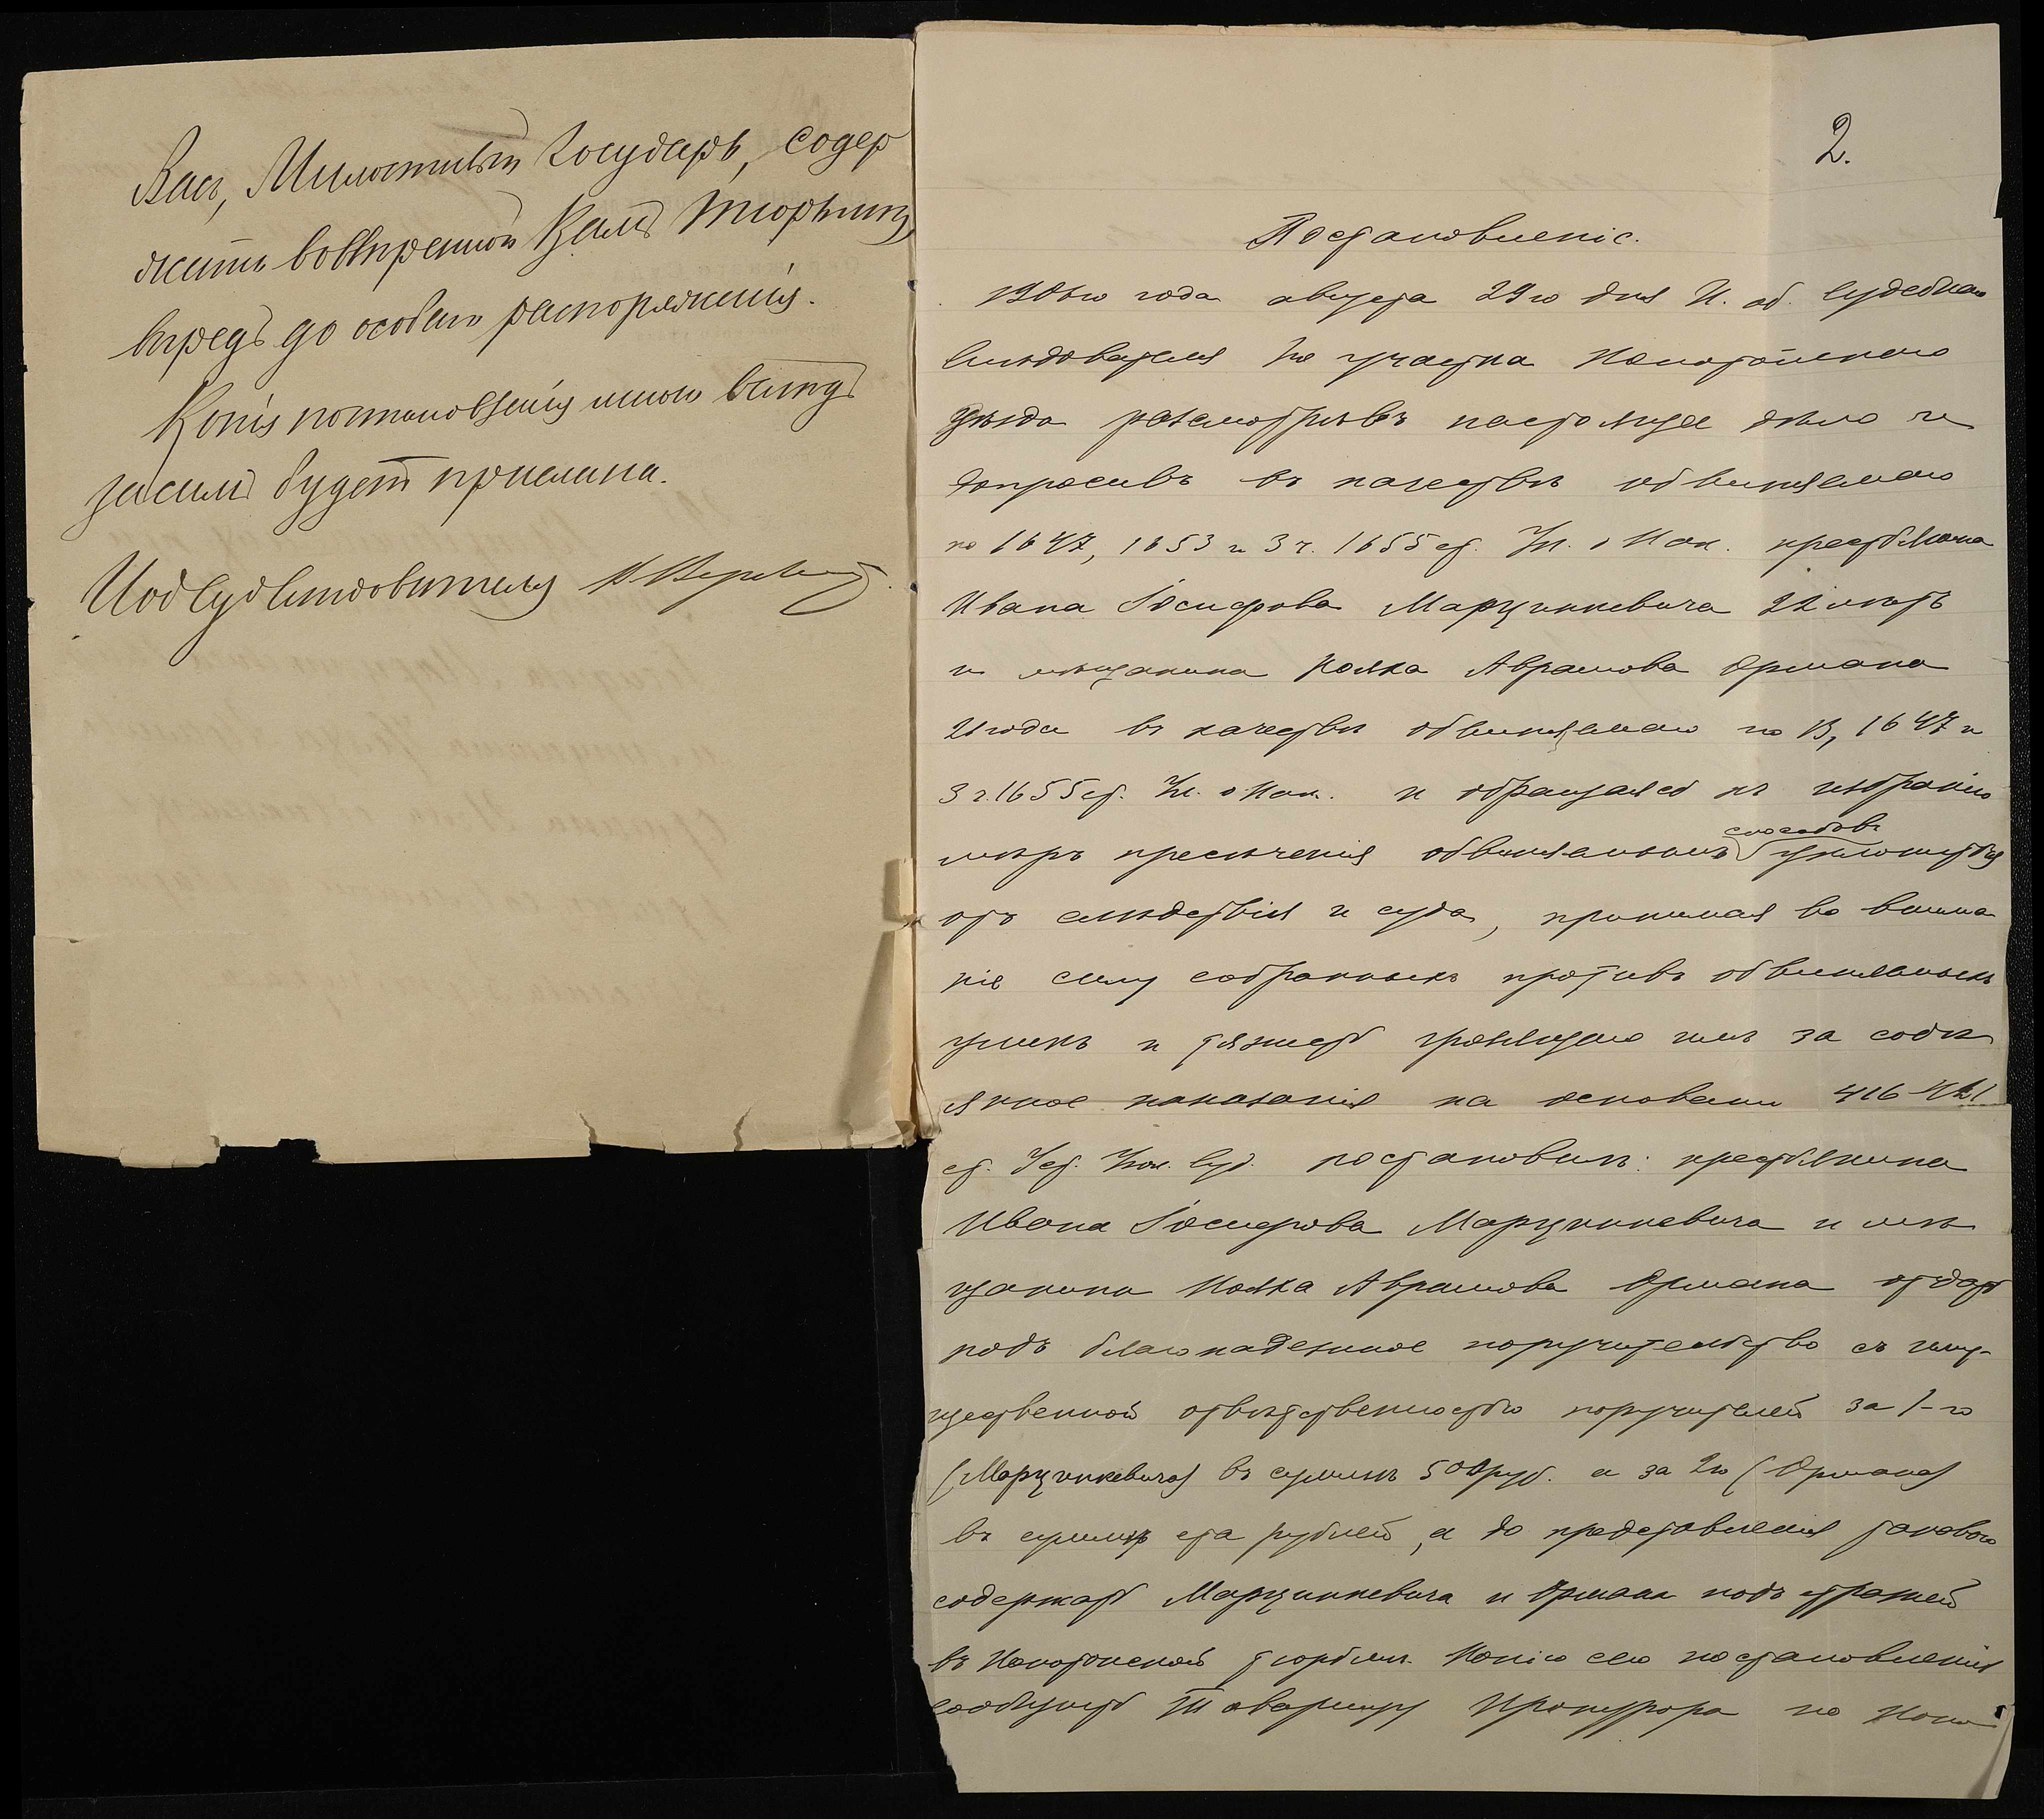 Васъ, Милостивый Государь, содер
жать во ввѣренной Вамъ тюрьмѣ,
впредь до особаго распоряженія.
Копія постановленія мною вслѣдъ
засимъ будетъ прислана.
И об Суд Слѣдователя
2.
Постановленіе.
года августа 29го дня И. об. Судебнаго
Слѣдователя участка Конотопскаго
уѣзда разсмотрѣвъ настоящее дѣло и
допросивъ въ качествѣ обвиняемаго
по 1647, 1653 и 3 ч. 1655 ст. Ул. о Нак. крестьянина
Ивана Іосифова Марцинкевича 22 лѣтъ
и мѣщанина Аврамова Ормана
21 года въ качествѣ обвиняемаго по 13, 1647 и
3 ч. 1655 ст. Ул. о Нак. и обращаясь къ избранію
мѣръ пресѣченія обвиняемымъ способовъ уклониться
отъ слѣдствія и суда, принимая во внима
ніе силу собранныхъ противъ обвиняемыхъ
уликъ и тяжесть грозящаго имъ за содѣ
янное наказанія на основаніи 416 421
ст. Уст. Угол. Суд. постановилъ: крестьянина
Ивана Іосифова Марцинкевича и мѣ
щанина Аврамова Ормана отдать
подъ благонадежное поручительство съ иму-
щественной отвѣтственностью поручителей за 1-го
(Марцинкевича) въ суммѣ 500 руб. а за 2го (Ормана)
въ суммѣ ста рублей, а до представленія таковаго
содержать Марцинкевича и Ормана подъ стражей
въ Конотопской тюрьмѣ. Копію сего постановленія
сообщить Товарищу Прокурора по Коно